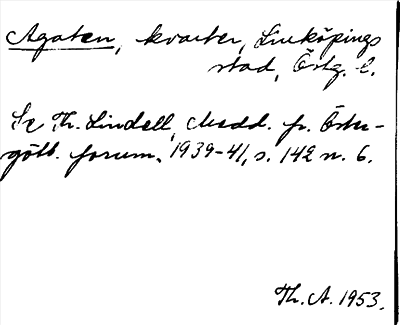 Agaten, kvarter, Linköpings
stad, Östg. l.
Se Th. Lindell, Medd. fr. Öster-
götl. fornm., 1939-41, s. 142 n. 6.
Th. A. 1953.